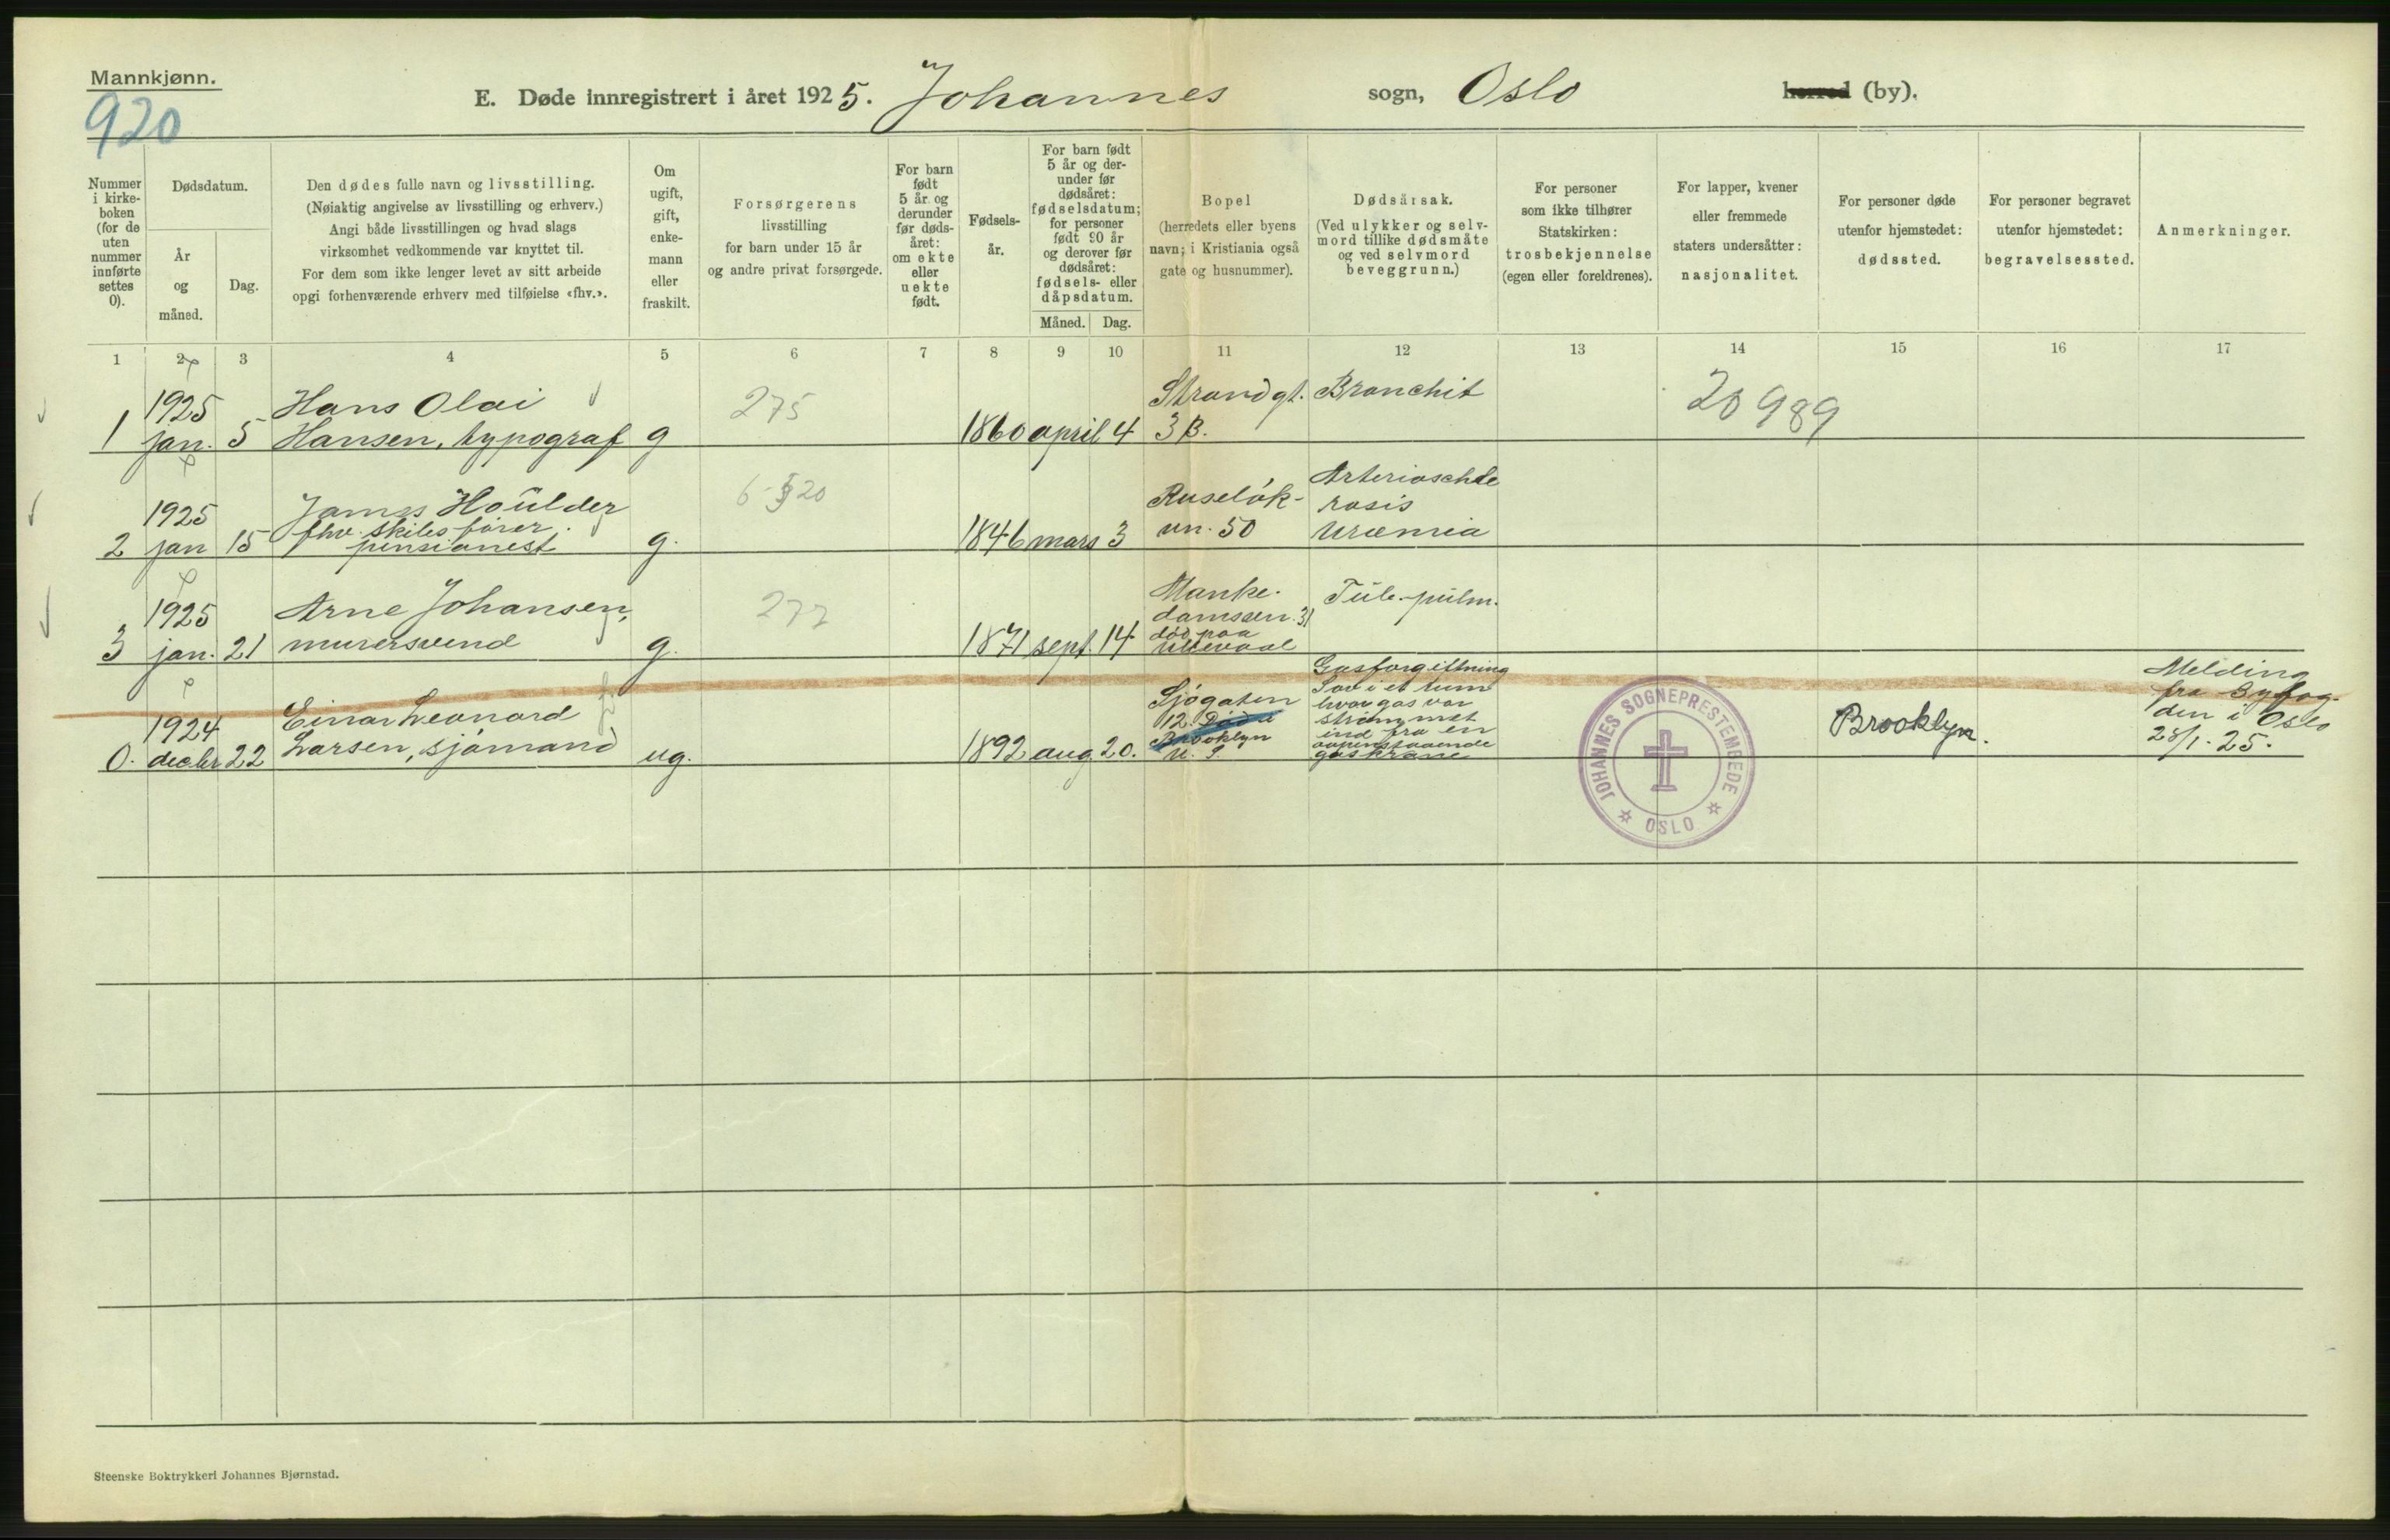 Mannkjønn.
920
E. Døde innregistrert i året 1925. Johannes sogn, Oslo herred (by).
Nummer
i kirke-
boken
(for de
uten
nummer
innførte
settes
0).
Dødsdatum.
År
og
måned.
Dag.
Den dødes fulle navn og livsstilling.
(Nøiaktig angivelse av livsstilling og erhverv.)
Angi både livsstillingen og hvad slags
virksomhet vedkommende var knyttet til.
For dem som ikke lenger levet av sitt arbeide
opgi forhenværende erhverv med tilføielse «fhv.».
Om
ugift,
gift,
enke-
mann
eller
fraskilt.
Forsørgerens
livsstilling
for barn under 15 år
og andre privat forsørgede.
For barn
født
5 år og
derunder
før døds-
året:
om ekte
eller
uekte
født.
Fødsels-
år.
For barn født
5 år og der-
under før
dødsåret:
fødselsdatum;
for personer
født 90 år
og derover før
dødsåret:
fødsels- eller
dåpsdatum.
Måned. Dag.
Bopel
(herredets eller byens
navn; i Kristiania også
gate og husnummer).
Dødsårsak.
(Ved ulykker og selv-
mord tillike dødsmåte
og ved selvmord
beveggrunn.)
For personer
som ikke tilhører
Statskirken:
trosbekjennelse
(egen eller foreldrenes).
For lapper, kvener
eller fremmede
staters undersåtter:
nasjonalitet.
For personer døde
utenfor hjemstedet:
dødssted.
For personer begravet
utenfor hjemstedet:
begravelsessted.
Anmerkninger.
1 2 3 4 5 6 7 8 9 10 11 12 13 14 15 16 17
1
1925
jan. 5
Hans Olai
Hansen, typograf
g
275
1860 april 4
Strandgt.
3 B.
Bronchit
20989
2
1925
jan 15
James Houlder
fhv. skibsfører
pensionest
g.
6-820
1846 mars 3
Ruseløk-
vn. 50
Arterioschle
rosis
Uræmia
3
1925
jan. 21
Arne Johansen,
murersvend
g.
277
1871 sept. 14
Munke-
damsvn. 31
død paa
Ullevaal
Tub. pulm.
0.
1924
decbr 22
Einar Leonard
Larsen, sjømand
ug.
1892 aug. 20.
Sjøgaten
12. Død i
Brooklyn
U. S.
Gasforgiftning
Sov i et rum
hvor gas var
strømmet
ind fra en
aapenstaaende
gaskrane
Brooklyn.
Melding
fra Byfog-
den i Oslo
28/1. 25.
JOHANNES SOGNEPRESTEMBEDE
OSLO
Steenske Boktrykkeri Johannes Bjørnstad.